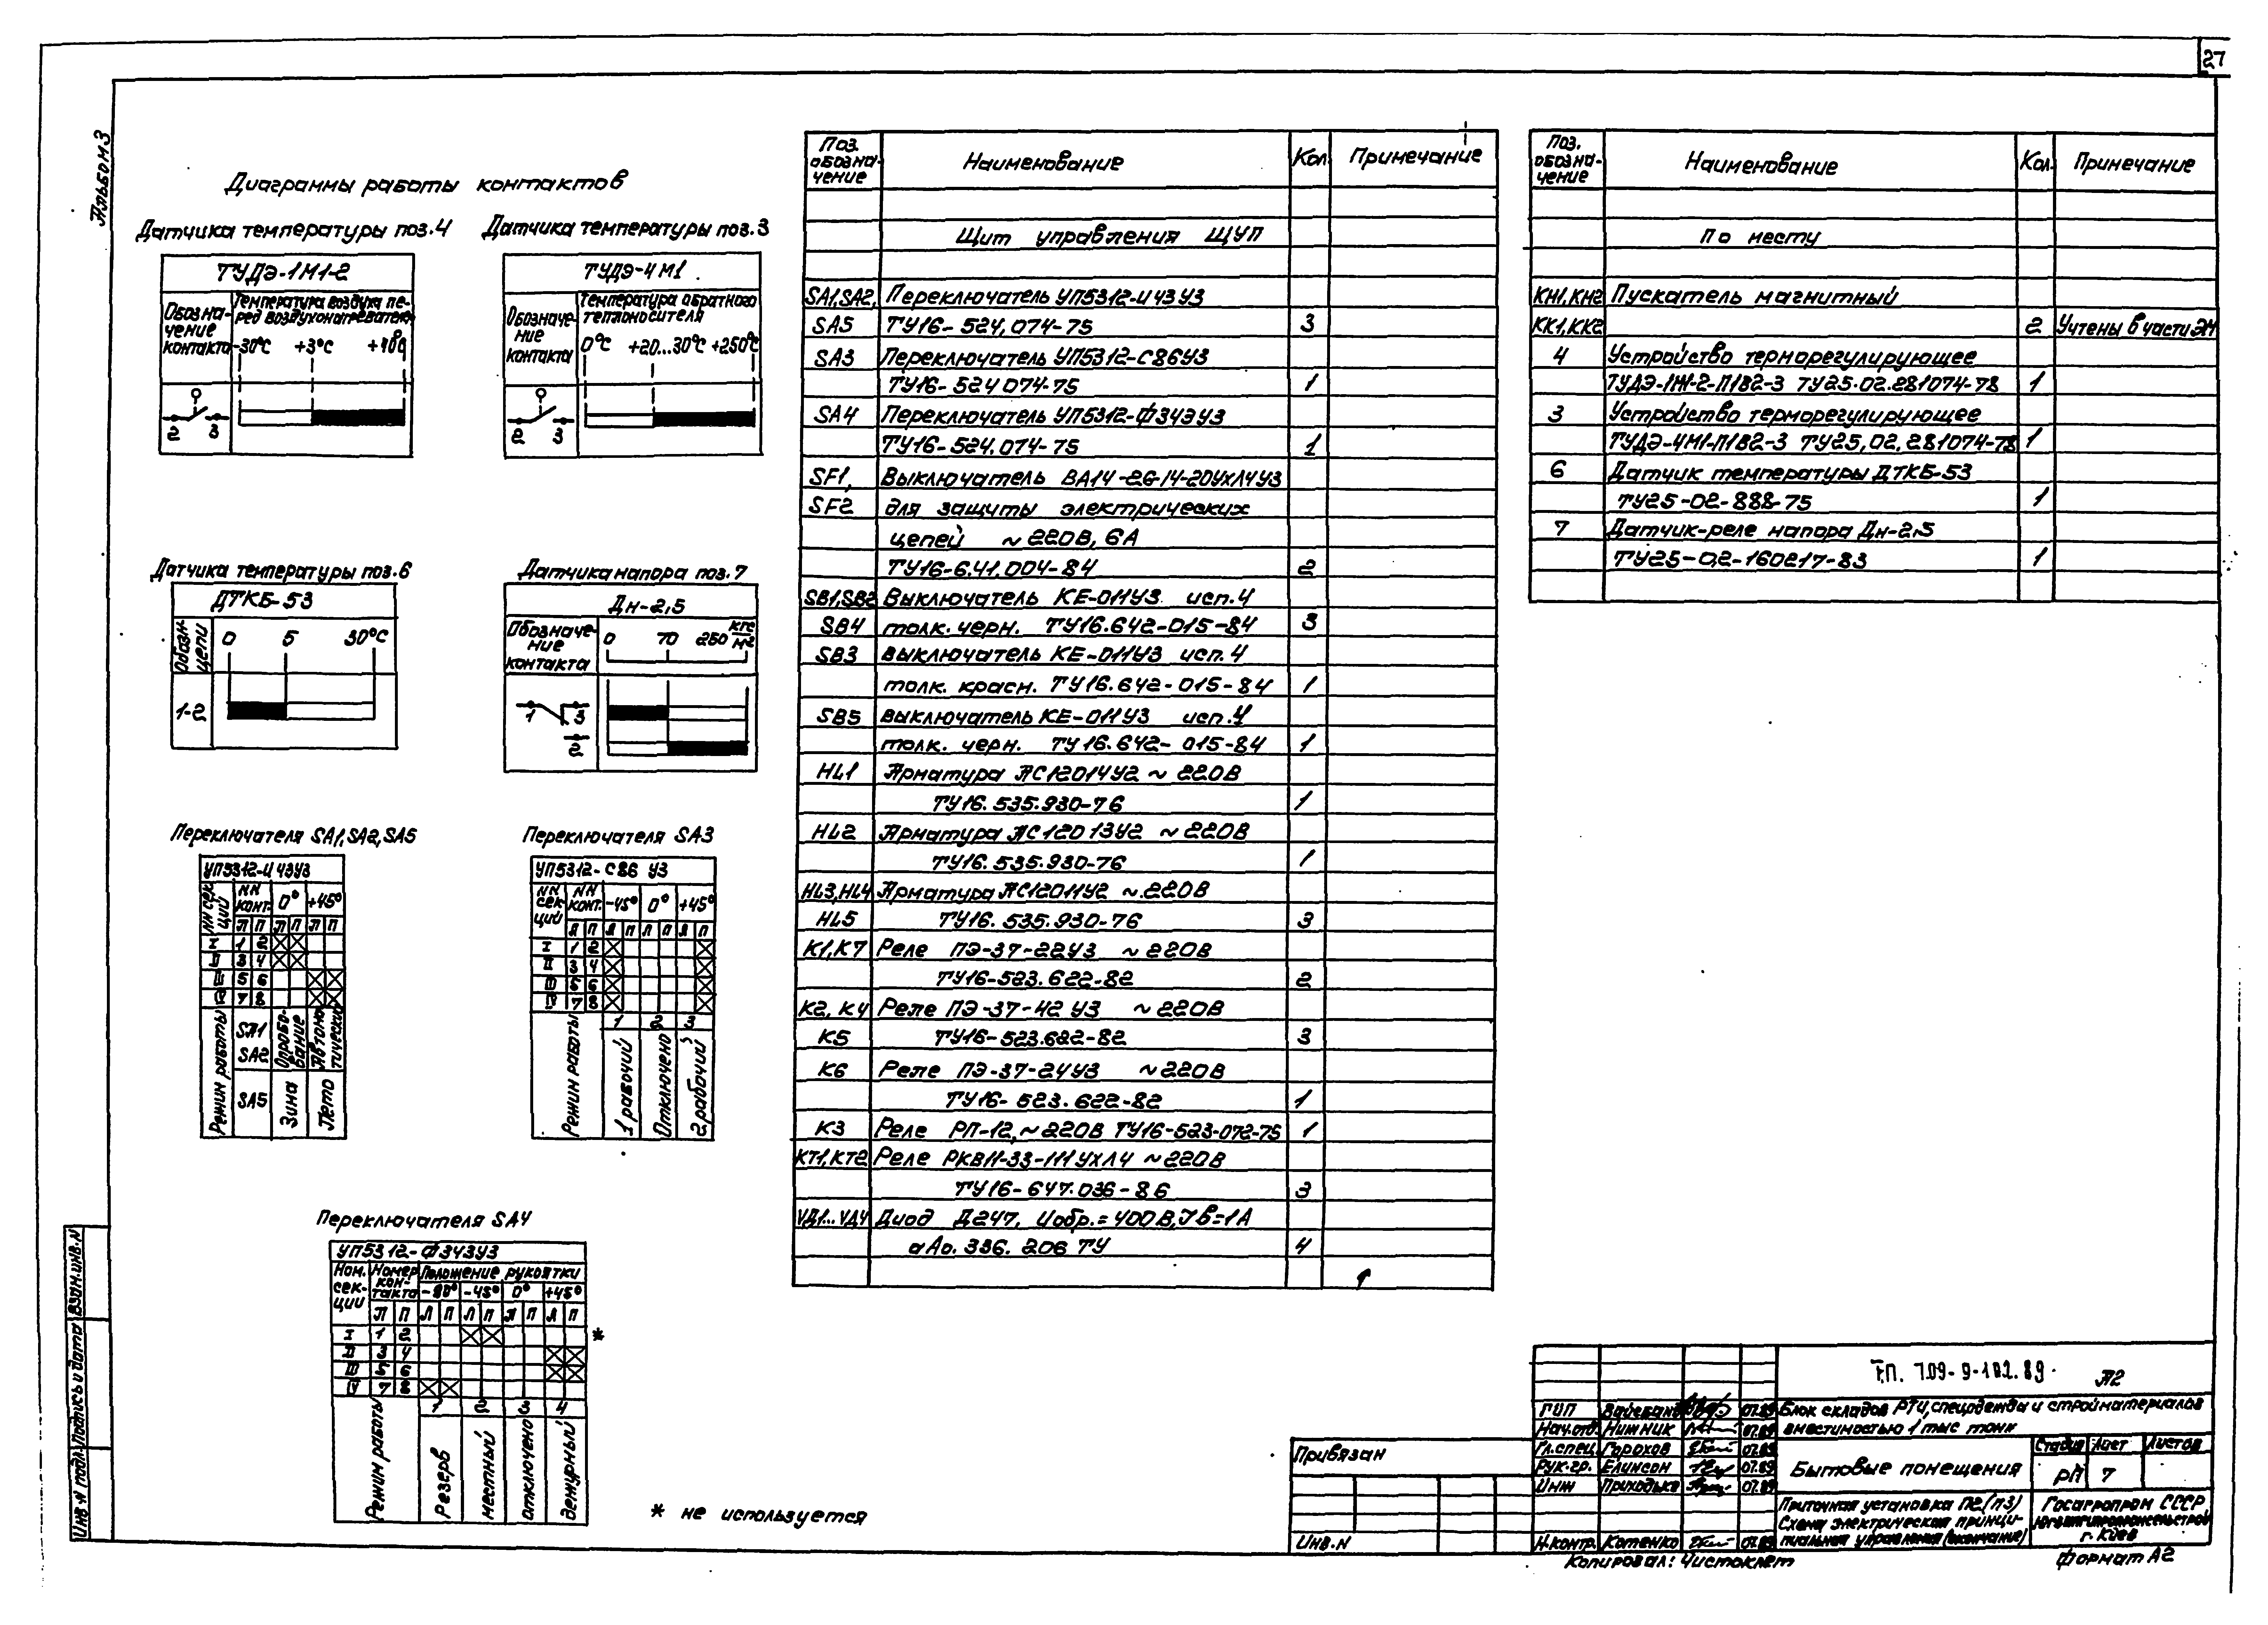 27
Альбом 3
Диаграммы работы контактов
Датчика температуры поз.4
ТУДЭ-1М1-2
Обозна-
чение
контакта
Температура воздуха пе-
ред воздухонагревателем
-30°С +3°С
2 3
Датчика температуры поз.3
ТУДЭ-4М1
Обозначе-
ние
контакта
Температура обратного
теплоносителя
0°С +20...30°С +250°С
2 3
Датчика температуры поз.6
ДТКБ-53
Обозн.
цепи
0 5 30°С
1-2
Датчика напора поз.7
Дн-2,5
Обозначе-
ние
контакта
0 70 250 кгс/м²
1 3
2
Переключателя SA1,SA2,SA5
УП5312-И43У3
NN сек
ций
NN
конт.
0° +45°
Л П Л П Л П
I 1 2
II 3 4
III 5 6
IV 7 8
Режим работы
SA1
SA2
Опробо-
вание
Автома
тический
SA5
Зима
Лето
Переключателя SA3
УП5312-С86 У3
NN
сек-
ций
NN
конт.
-45° 0° +45°
Л П Л П Л П Л П
I 1 2
II 3 4
III 5 6
IV 7 8
1 2 3
Режим работы
1 рабочий
Отключено
2 рабочий
Переключателя SA4
УП5312-Ф343У3
Ном.
сек-
ций
Номер
кон-
такта
Положение рукоятки
-90° -45° 0° +45°
Л П Л П Л П Л П Л П
I 1 2 *
II 3 4
III 5 6
IV 7 8
1 2 3 4
Режим работы
Резерв
местный
отключено
Дежурный
* не используется
Поз.
обозна-
чение
Наименование
Кол.
Примечание
Щит управления ЩУП
SA1,SA2, Переключатель УП5312-И43У3
SA5 ТУ16-524,074-75 3
SA3 Переключатель УП5312-С86У3
ТУ16-524 074-75 1
SA4 Переключатель УП5312-Ф343У3
ТУ16-524.074-75 1
SF1, Выключатель ВА14-26-14-20УХЛ4У3
SF2 для защиты электрических
цепей ~220В, 6А
ТУ16-6.41.004-84 2
SB1,SB2 Выключатель КЕ-011У3 исп.4
SB4 толк. черн. ТУ16.642-015-84 3
SB3 выключатель КЕ-011У3 исп.4
толк. красн. ТУ16.642-015-84 1
SB5 выключатель КЕ-011У3 исп.4
толк. черн. ТУ16.642-015-84 1
HL1 Арматура АС12014У2 ~220В
ТУ16.535.930-76 1
HL2 Арматура АС12013У2 ~220В
ТУ16.535.930-76 1
HL3,HL4 Арматура АС12011У2 ~220В
HL5 ТУ16.535.930-76 3
K1,K7 Реле ПЭ-37-22У3 ~220В
ТУ16-523.622-82 2
K2, K4 Реле ПЭ-37-42 У3 ~220В
K5 ТУ16-523.622-82 3
K6 Реле ПЭ-37-24У3 ~220В
ТУ16-523.622-82 1
K3 Реле РП-12,~220В ТУ16-523-072-75 1
KT1,KT2 Реле РКВ11-33-111УХЛ4 ~220В
ТУ16-647.036-86 3
VД1...VД4 Диод Д247, Uобр.=400В,Iв=1А
аАо.336.206 ТУ 4
Поз.
обозна-
чение
Наименование
Кол.
Примечание
По месту
КН1,КН2 Пускатель магнитный
КК1,КК2 2 Учтены в части ЭМ
4 Устройство терморегулирующее
ТУДЭ-1М1-2-П1В2-3 ТУ25.02.281074-78 1
3 Устройство терморегулирующее
ТУДЭ-4М1-П1В2-3 ТУ25,02,281074-78 1
6 Датчик температуры ДТКБ-53
ТУ25-02-888-75 1
7 Датчик-реле напора Дн-2,5
ТУ25-02-160217-83 1
Т.П. 709-9-102.89 А2
Блок складов РТИ, спецодежды и стройматериалов
вместимостью 1 тыс тонн
ГИП 07.89
Нач.отд. Нижник 07.89
Гл.спец. Горохов 07.89
Рук.гр. Елинсон 07.89
Инж Приходько 07.89
Н.контр. Котенко 07.89
Бытовые помещения
Стадия Лист Листов
РП 7
Приточная установка П2(П3)
Схема электрическая принци-
пиальная управления (окончание)
Госагропром СССР
г. Киев
Привязан
Инв.N
Копировал: Чистоклет
Формат А2
Взам.инв.N
Подпись и дата
Инв.N подл.